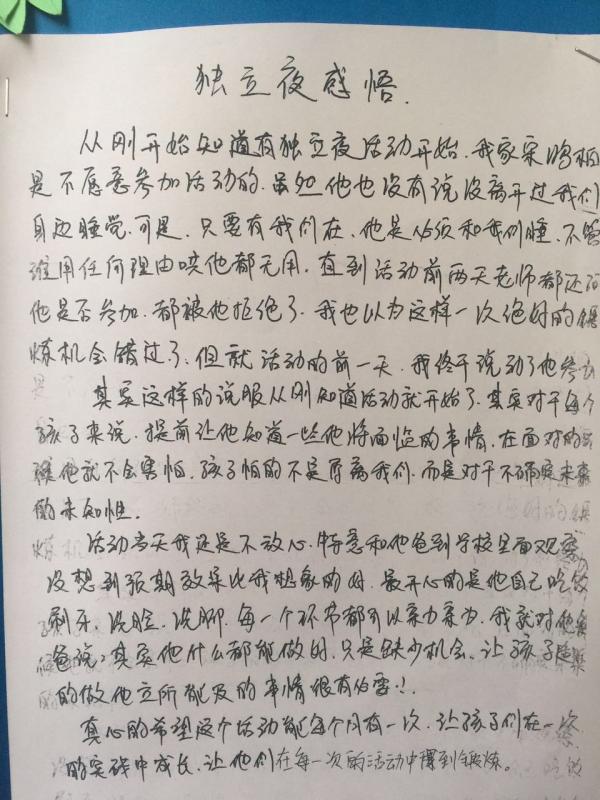 独立夜感悟.
从刚开始知道有独立夜活动开始.我家宋鸣桐
是不愿意参加活动的.虽然他也没有说没离开过我们
身边睡觉.可是.只要有我们在.他是必须和我们睡.不管
谁用任何理由哄他都无用.直到活动前两天老师都还问
他是否参加.都被他拒绝了.我也以为这样一次绝好的锻
炼机会错过了.但就活动的前一天.我终于说动了他参加
其实这样的说服从刚知道活动就开始了.其实对于每个
孩子来说.提前让他知道一些他将面临的事情.在面对的时
候他就不会害怕.孩子怕的不是离我们.而是对于不确定未来
的未知性.
活动当天我还是不放心.特意和他爸到学校里面观察
没想到预期效果比我想象的好.最开心的是他自己吃饭
刷牙.洗脸.洗脚.每一个环节都可以亲力亲为.我就对他
爸说:其实他什么都能做好.只是缺少机会.让孩子
的做他立所能及的事情很有必要!.
真心的希望这个活动能每个月有一次.让孩子们在一次
的实践中成长.让他们在每一次的活动中得到锻炼。